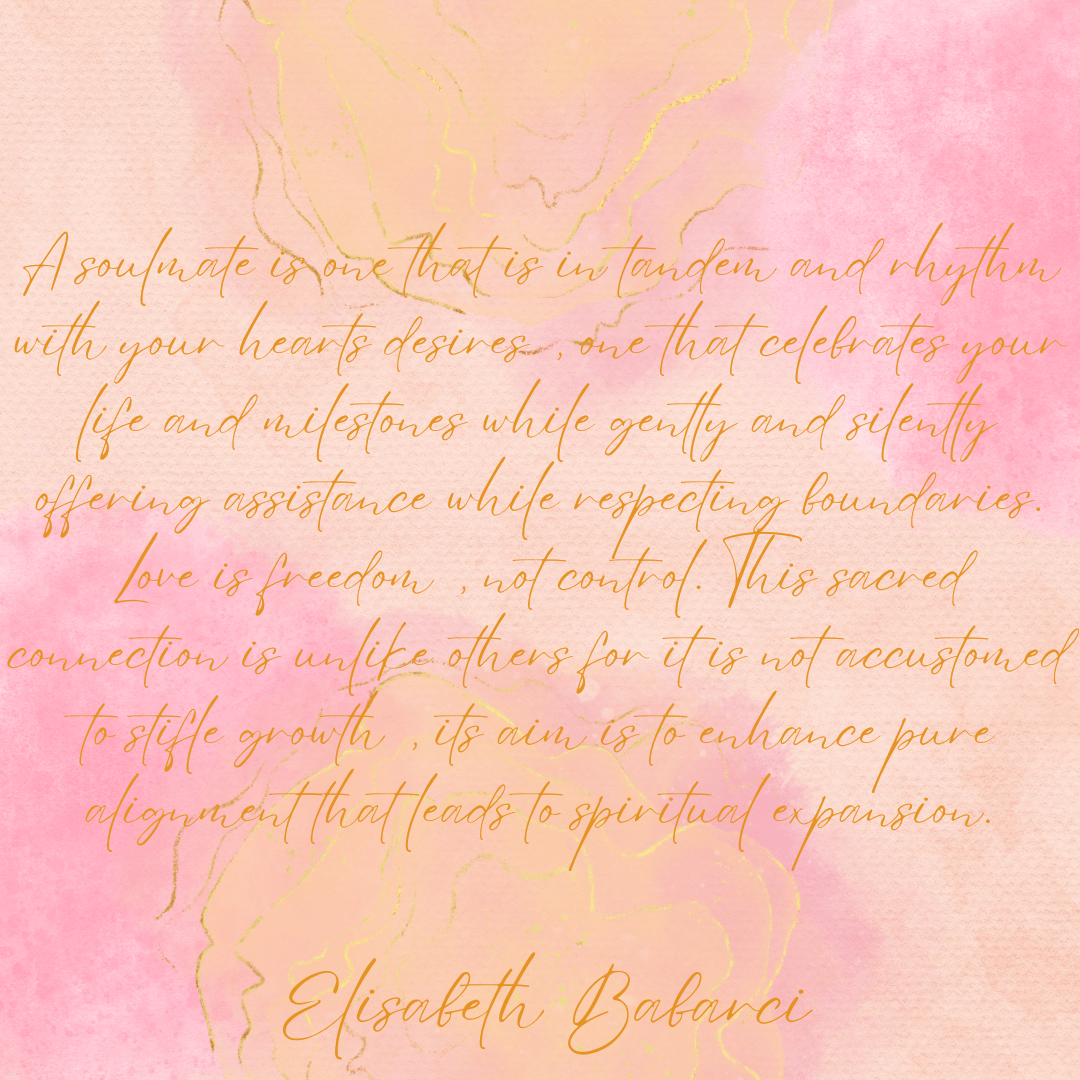 A soulmate is one that is in tandem and rhythm
with your hearts desires , one that celebrates your
life and milestones while gently and silently
offering assistance while respecting boundaries.
Love is freedom , not control. This sacred
connection is unlike others for it is not accustomed
to stifle growth , its aim is to enhance pure
alignment that leads to spiritual expansion.
Elisabeth Babarci